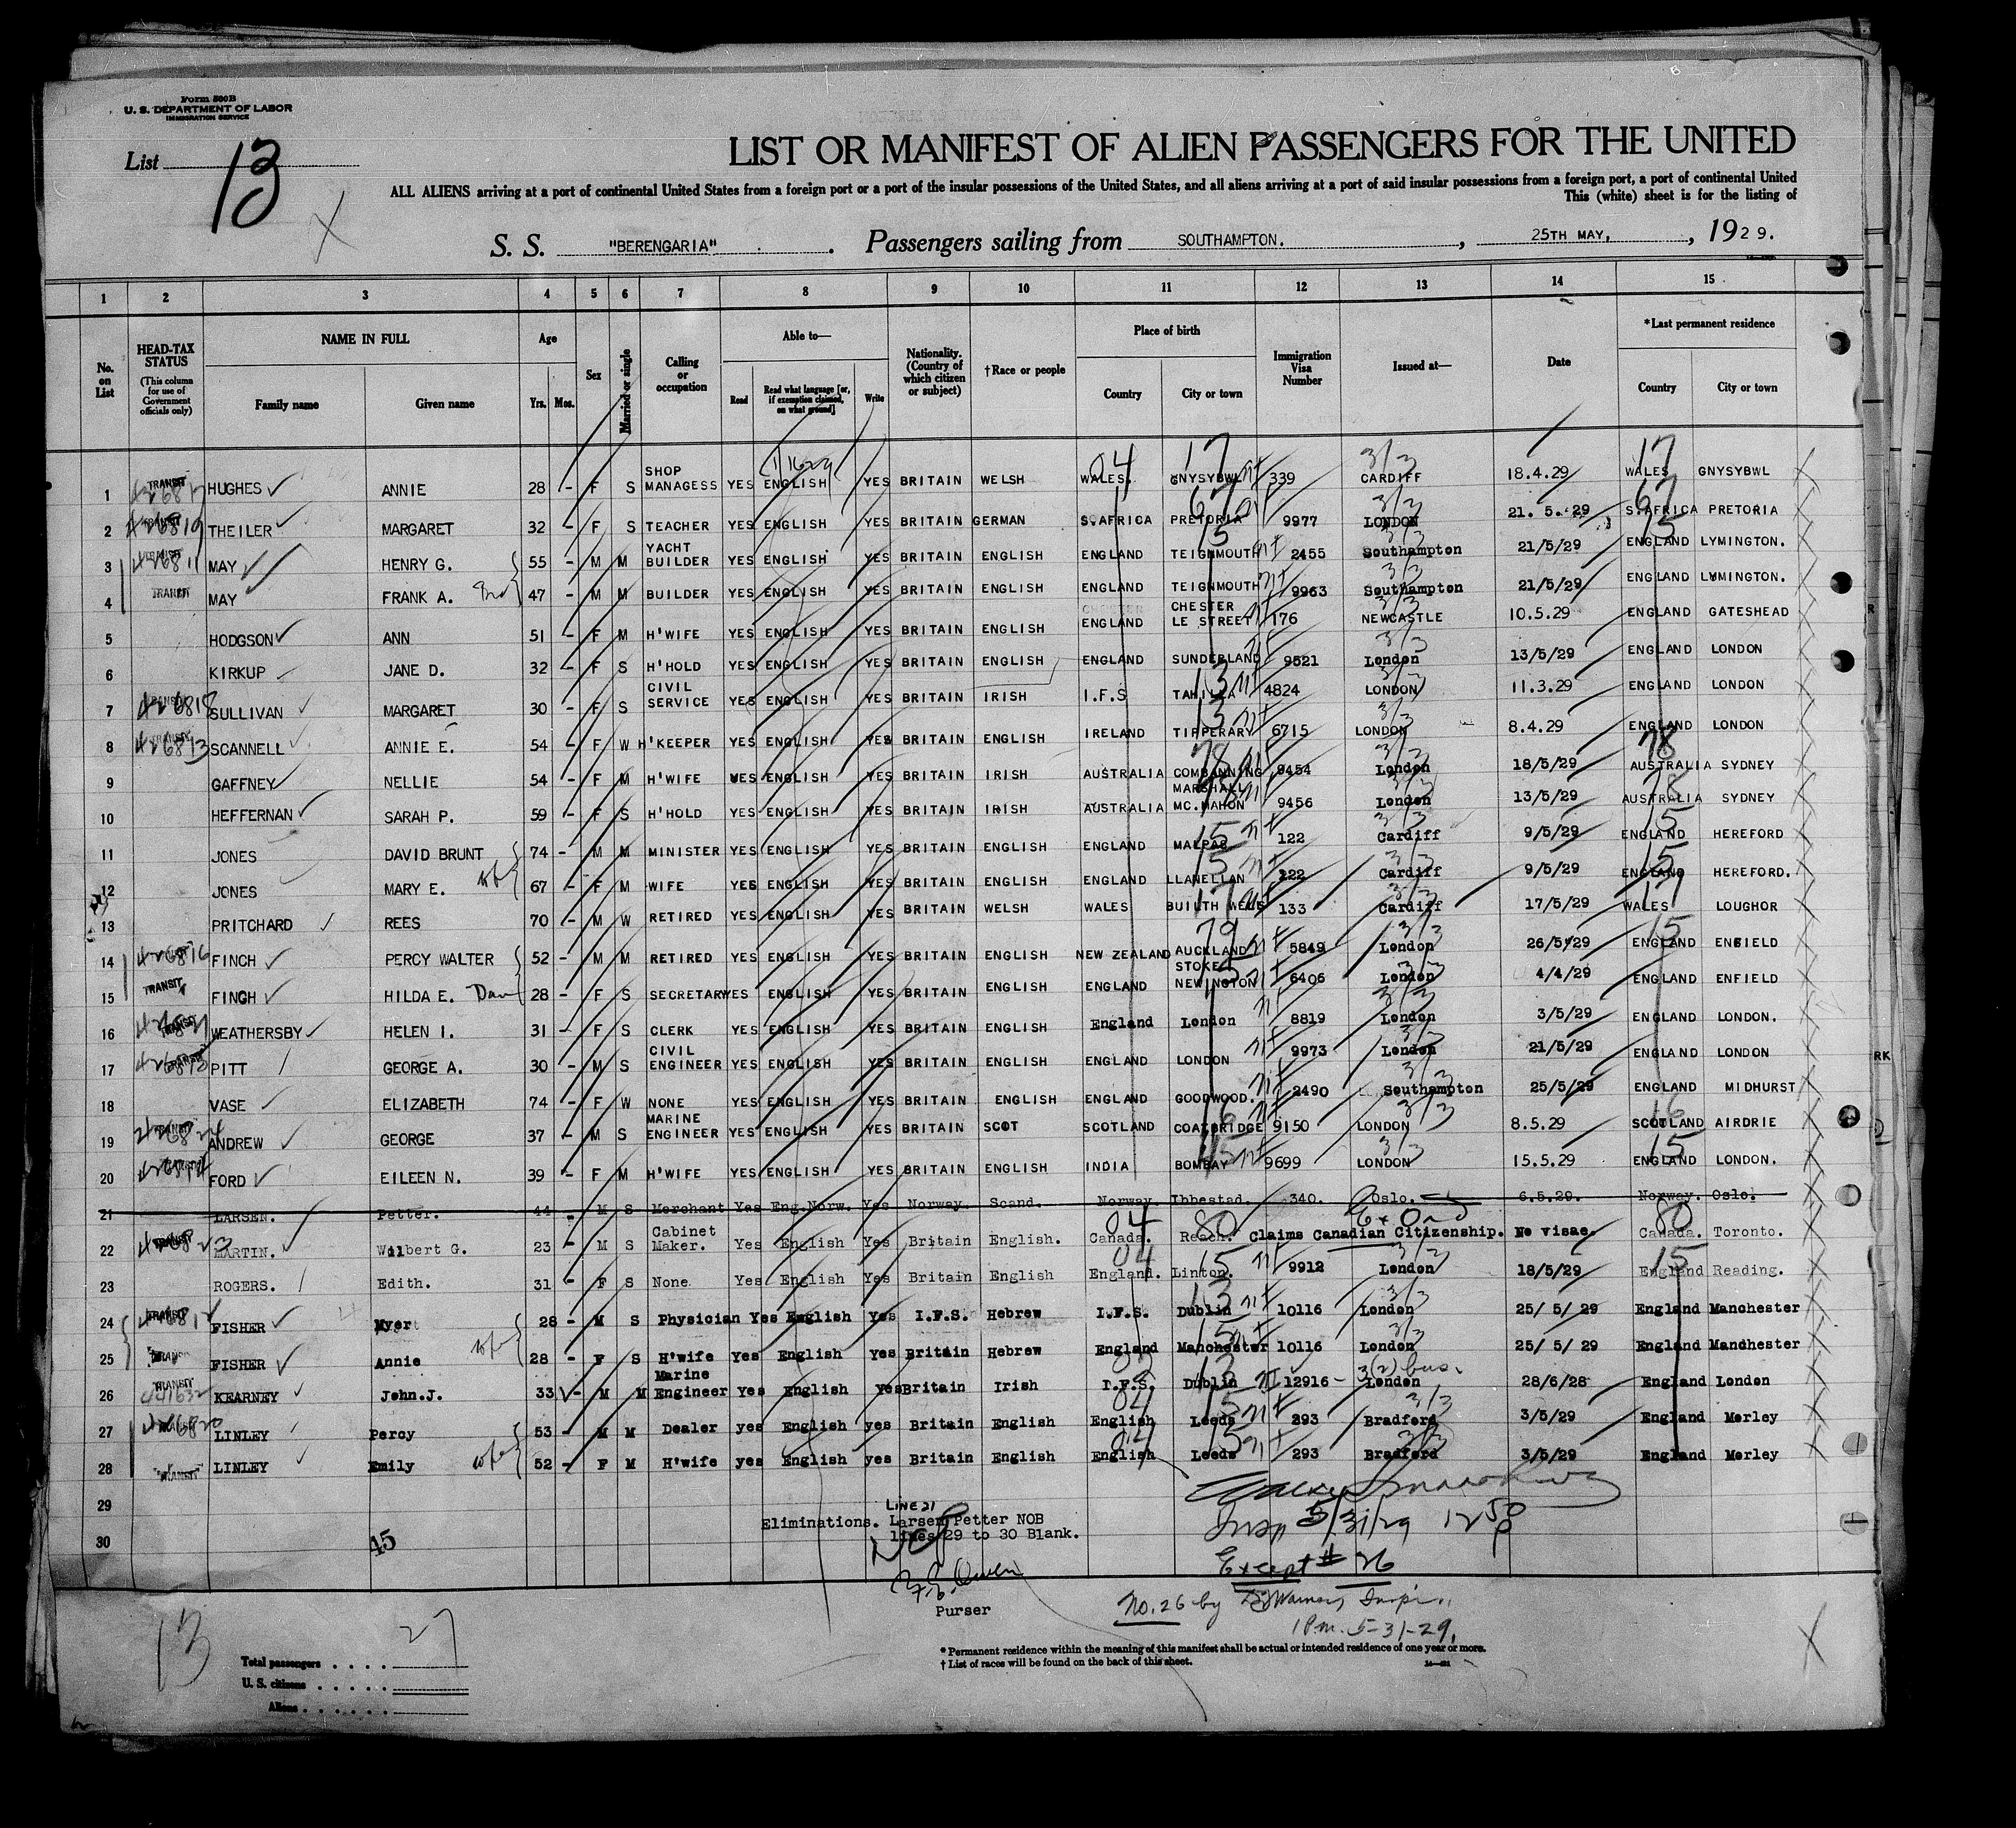 Form 500B
U. S. DEPARTMENT OF LABOR
IMMIGRATION SERVICE
List 13
LIST OR MANIFEST OF ALIEN PASSENGERS FOR THE UNITED
ALL ALIENS arriving at a port of continental United States from a foreign port or a port of the insular possessions of the United States, and all aliens arriving at a port of said insular possessions from a foreign port, a port of continental United
This (white) sheet is for the listing of
S. S. "BERENGARIA" . Passengers sailing from SOUTHAMPTON. , 25TH MAY, , 1929.
1 2 3 4 5 6 7 8 9 10 11 12 13 14 15
No. on List
HEAD-TAX STATUS (This column for use of Government officials only)
NAME IN FULL Family name Given name
Age Yrs. Mos.
Sex
Married or single
Calling or occupation
Able to— Read Read what language [or, if exemption claimed, on what ground] Write
Nationality. (Country of which citizen or subject)
†Race or people
Place of birth Country City or town
Immigration Visa Number
Issued at—
Date
*Last permanent residence Country City or town
1 TRANSIT HUGHES ANNIE 28 - F S SHOP MANAGESS YES ENGLISH YES BRITAIN WELSH WALES. GNYSYBWL 339 CARDIFF 18.4.29 WALES GNYSYBWL
2 THEILER MARGARET 32 - F S TEACHER YES ENGLISH YES BRITAIN GERMAN S.AFRICA PRETORIA 9977 LONDON 21.5.29 S.AFRICA PRETORIA
3 MAY HENRY G. 55 - M M YACHT BUILDER YES ENGLISH YES BRITAIN ENGLISH ENGLAND TEIGNMOUTH 2455 Southampton 21/5/29 ENGLAND LYMINGTON.
4 TRANSIT MAY FRANK A. 47 - M M BUILDER YES ENGLISH YES BRITAIN ENGLISH ENGLAND TEIGNMOUTH 9963 Southampton 21/5/29 ENGLAND LYMINGTON.
5 HODGSON ANN 51 - F M H'WIFE YES ENGLISH YES BRITAIN ENGLISH ENGLAND CHESTER LE STREET 176 NEWCASTLE 10.5.29 ENGLAND GATESHEAD
6 KIRKUP JANE D. 32 - F S H'HOLD YES ENGLISH YES BRITAIN ENGLISH ENGLAND SUNDERLAND 9521 London 13/5/29 ENGLAND LONDON
7 SULLIVAN MARGARET 30 - F S CIVIL SERVICE YES ENGLISH YES BRITAIN IRISH I.F.S TAHILLA 4824 LONDON 11.3.29 ENGLAND LONDON
8 SCANNELL ANNIE E. 54 - F W H'KEEPER YES ENGLISH YES BRITAIN ENGLISH IRELAND TIPPERARY 6715 LONDON 8.4.29 ENGLAND LONDON
9 GAFFNEY NELLIE 54 - F M H'WIFE YES ENGLISH YES BRITAIN IRISH AUSTRALIA 9454 London 18/5/29 AUSTRALIA SYDNEY
10 HEFFERNAN SARAH P. 59 - F S H'HOLD YES ENGLISH YES BRITAIN IRISH AUSTRALIA MARSHALL MC.MAHON 9456 London 13/5/29 AUSTRALIA SYDNEY
11 JONES DAVID BRUNT 74 - M M MINISTER YES ENGLISH YES BRITAIN ENGLISH ENGLAND MALPAS 122 Cardiff 9/5/29 ENGLAND HEREFORD
12 JONES MARY E. 67 - F M WIFE YES ENGLISH YES BRITAIN ENGLISH ENGLAND LLANELLAN 122 Cardiff 9/5/29 ENGLAND HEREFORD.
13 PRITCHARD REES 70 - M W RETIRED YES ENGLISH YES BRITAIN WELSH WALES BUILTH WELS 133 Cardiff 17/5/29 WALES LOUGHOR
14 FINCH PERCY WALTER 52 - M M RETIRED YES ENGLISH YES BRITAIN ENGLISH NEW ZEALAND AUCKLAND 5849 London 26/5/29 ENGLAND ENFIELD
15 TRANSIT FINCH HILDA E. 28 - F S SECRETARY YES ENGLISH YES BRITAIN ENGLISH ENGLAND STOKE NEWINGTON 6406 London 4/4/29 ENGLAND ENFIELD
16 WEATHERSBY HELEN I. 31 - F S CLERK YES ENGLISH YES BRITAIN ENGLISH England London 8819 London 3/5/29 ENGLAND LONDON.
17 PITT GEORGE A. 30 - M S CIVIL ENGINEER YES ENGLISH YES BRITAIN ENGLISH ENGLAND LONDON 9973 London 21/5/29 ENGLAND LONDON
18 VASE ELIZABETH 74 - F W NONE YES ENGLISH YES BRITAIN ENGLISH ENGLAND GOODWOOD. 2490 Southampton 25/5/29 ENGLAND MIDHURST
19 ANDREW GEORGE 37 - M S MARINE ENGINEER YES ENGLISH YES BRITAIN SCOT SCOTLAND COATBRIDGE 9150 LONDON 8.5.29 SCOTLAND AIRDRIE
20 FORD EILEEN N. 39 - F M H'WIFE YES ENGLISH YES BRITAIN ENGLISH INDIA BOMBAY 9699 LONDON 15.5.29 ENGLAND LONDON.
21 LARSEN. Petter. 44 - M S Merchant Yes Eng.Norw. Yes Norway. Scand. Norway Ibbestad. 340. Oslo. 6.5.29. Norway. Oslo.
22 MARTIN. Wilbert G. 23 - M S Cabinet Maker. Yes English Yes Britain English. Canada. Reach. Claims Canadian Citizenship. No visae. Canada. Toronto.
23 ROGERS. Edith. 31 - F S None Yes English Yes Britain English England. Linton. 9912 London 18/5/29 England Reading.
24 TRANSIT FISHER Myer 28 - M S Physician Yes English Yes I.F.S. Hebrew I.F.S. Dublin 10116 London 25/ 5/ 29 England Manchester
25 FISHER Annie 28 - F S H'wife Yes English Yes Britain Hebrew England Manchester 10116 London 25/ 5/ 29 England Manchester
26 TRANSIT KEARNEY John.J. 33 - M M Marine Engineer Yes English Yes Britain Irish I.F.S. Dublin 12916 - London 3(2) bus. 28/6/28 England London
27 LINLEY Percy 53 - M M Dealer yes English yes Britain English English Leeds 293 Bradford 3/5/29 England Morley
28 TRANSIT LINLEY Emily wife 52 - F M H'wife yes English yes Britain English English Leeds 293 Bradford 3/5/29 England Morley
29
30
45
LINE 21
Eliminations. Larsen Petter NOB
lines 29 to 30 Blank.
Insp 5/31/29 12 50 P
Except # 26
Purser
No. 26 by
1 P.m. 5-31-29.
13
27
Total passengers
U. S. citizens
Aliens
* Permanent residence within the meaning of this manifest shall be actual or intended residence of one year or more.
† List of races will be found on the back of this sheet.